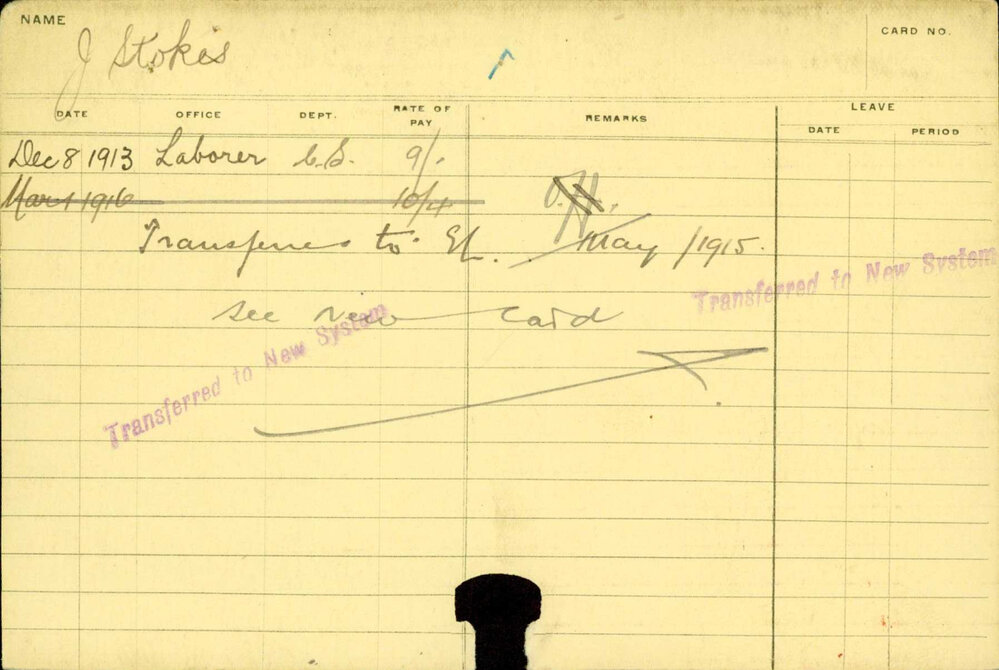 NAME
J Stokes
CARD NO.
DATE OFFICE DEPT. RATE OF PAY REMARKS LEAVE
DATE PERIOD
Dec 8 1913 Laborer C.S. 9/.
Mar 1 1916 10/4
Transferred to May /1915.
see new card
Transferred to New System
Transferred to New System